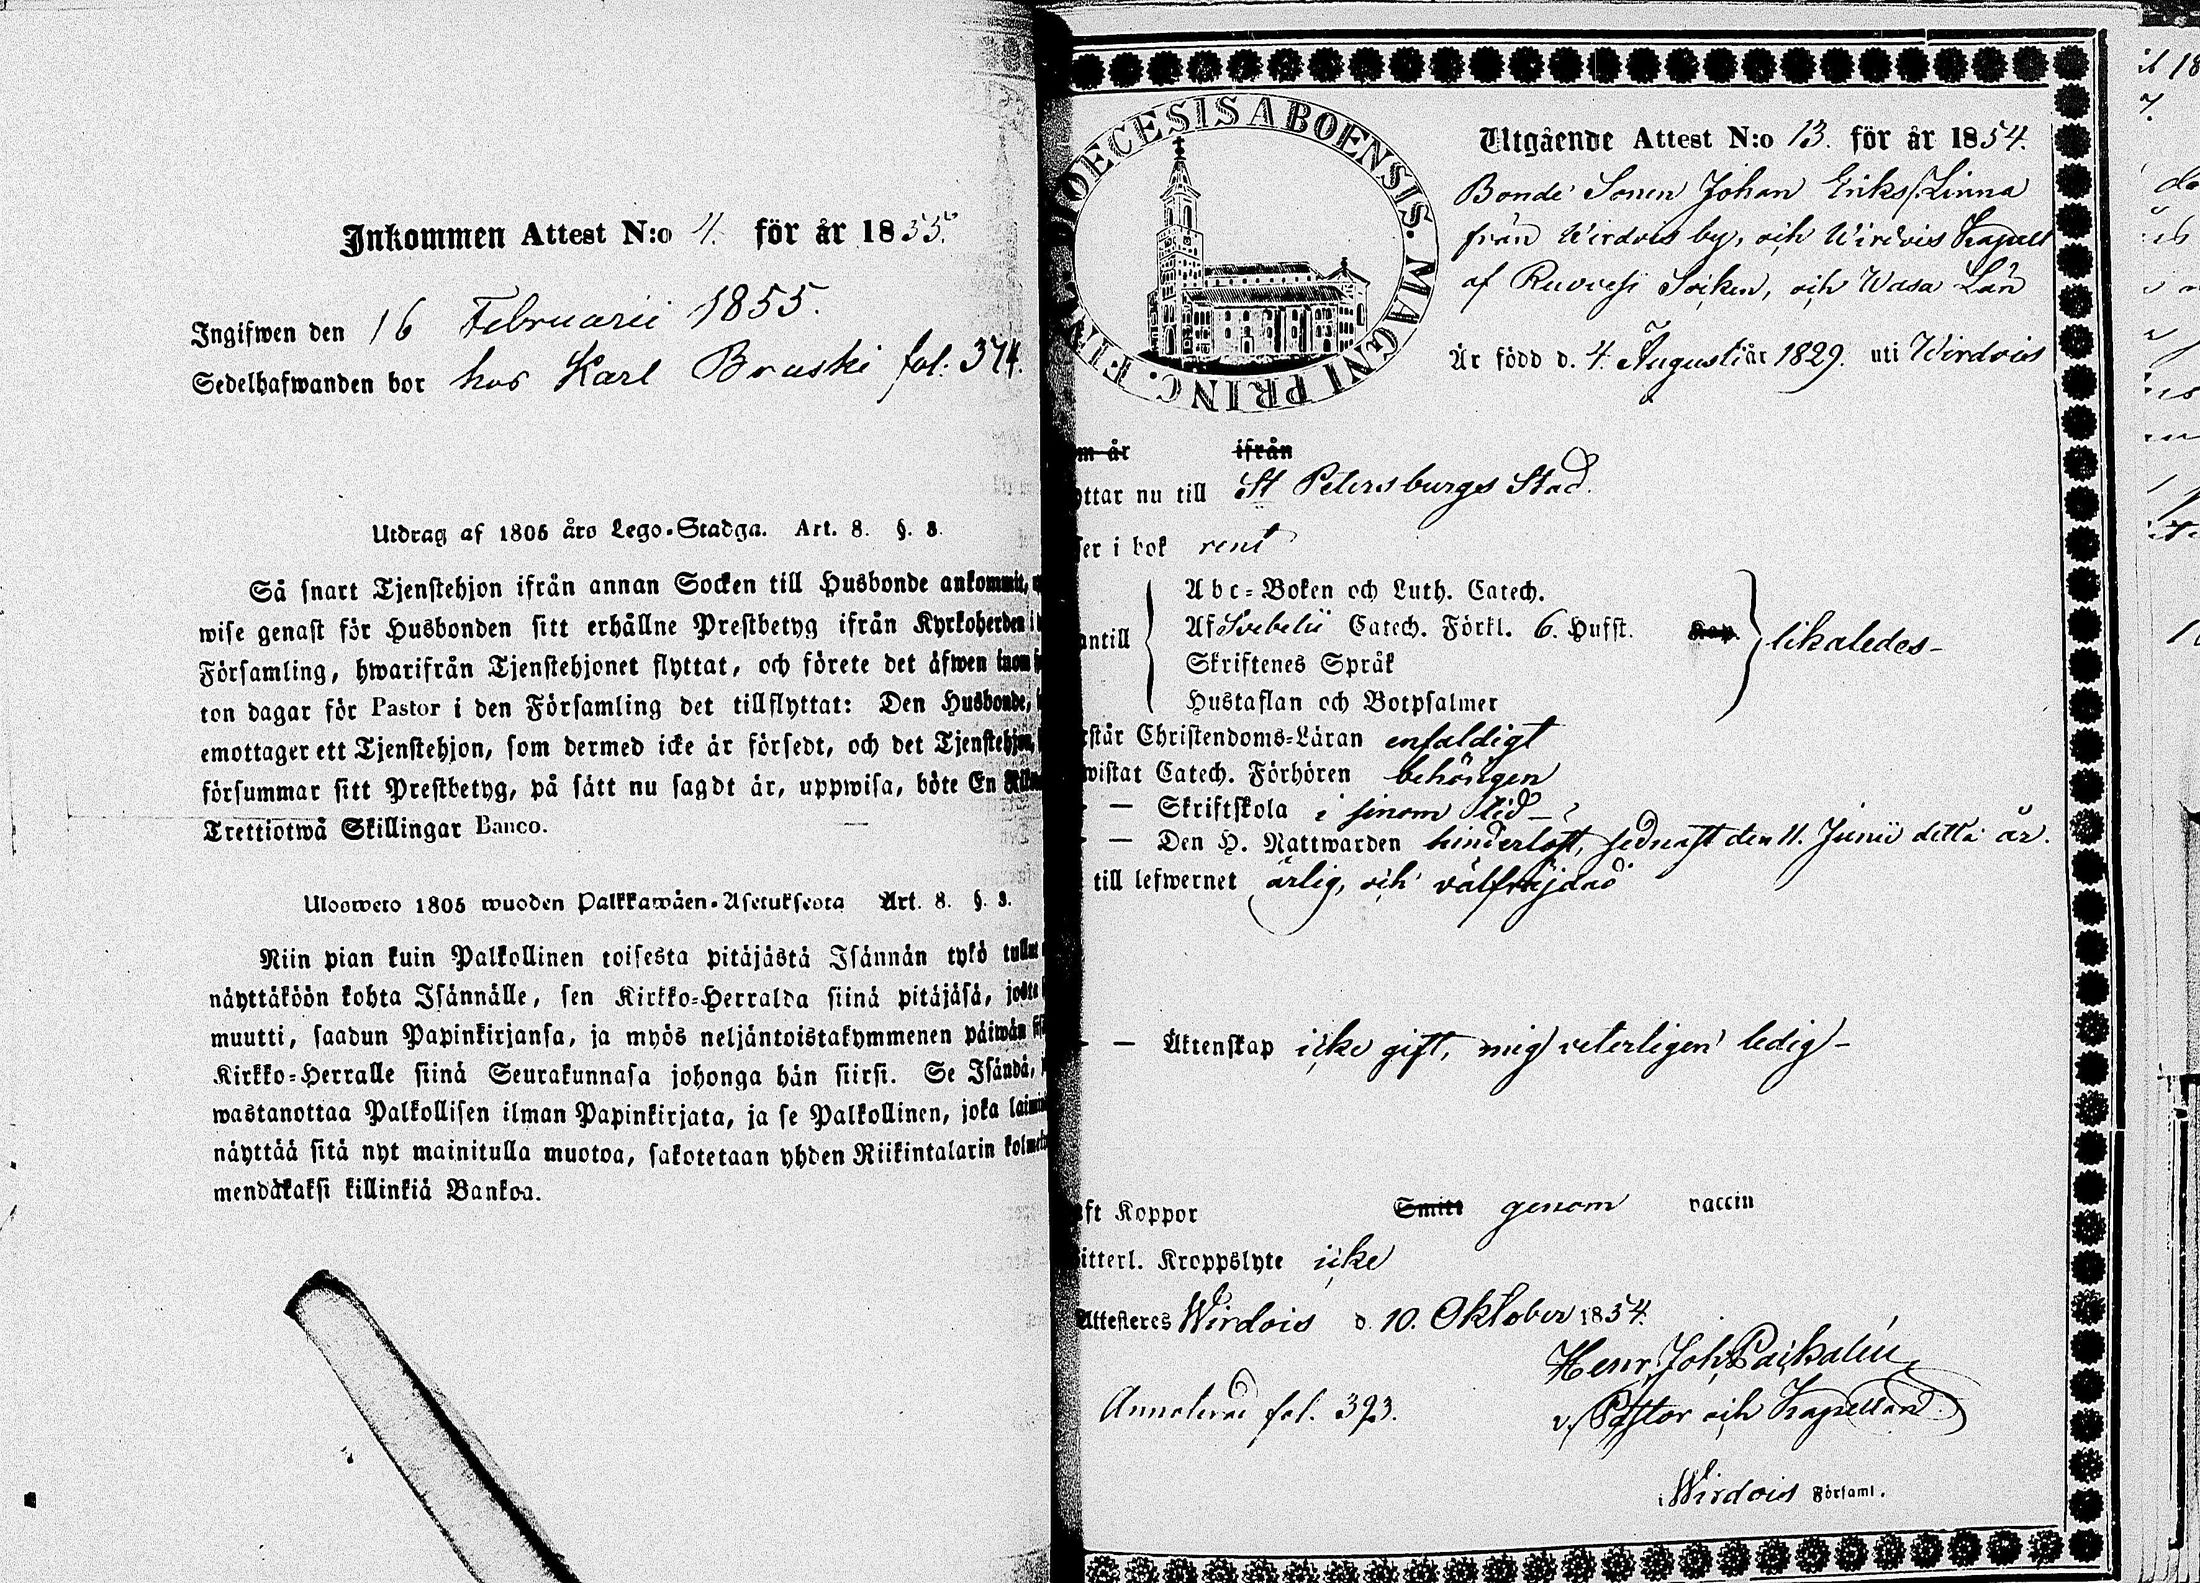 Inkommen Attest N:o 4. för år 1855.
Ingifwen den 16 Februarii 1855.
Sedelhafwanden bor hos Karl Bruski fol. 374.
Utdrag af 1805 års Lego-Stadga. Art. 8. §. 3.
Så snart Tjenstehjon ifrån annan Socken till Husbonde ankommit,
wise genast för Husbonden sitt erhållne Prestbetyg ifrån Kyrkoherden i
Församling, hwarifrån Tjenstehjonet flyttat, och förete det äfwen inom
ton dagar för Pastor i den Församling det tillflyttat: Den Husbonde,
emottager ett Tjenstehjon, som dermed icke är försedt, och det Tjenstehjon,
försummar sitt Prestbetyg, på sätt nu sagdt är, uppwisa, böte En
Trettiotwå Skillingar Banco.
Ulosweto 1805 wuoden Palkkawäen-Asetuksesta Art. 8. §. 3.
Niin pian kuin Palkollinen toisesta pitäjästä Isännän tykö tullut
näyttäköön kohta Isännälle, sen Kirkko-Herralda siinä pitäjäsä, josta
muutti, saadun Papinkirjansa, ja myös neljäntoistakymmenen päiwän
Kirkko-Herralle siinä Seurakunnasa johonga hän siirsi. Se Isändä,
wastanottaa Palkollisen ilman Papinkirjata, ja se Palkollinen, joka
näyttää sitä nyt mainitulla muotoa, sakotetaan yhden Riikintalarin
mendäkaksi killinkiä Bankoa.
DIOECESIS ABOENSIS. MAGNI PRINC. FINL.
Utgående Attest N:o 13. för år 1854.
Bonde Sonen Johan Eriks/. Linna
från Wirdois by, och Wirdois Kapell
af Ruovesi Socken, och Wasa Län
Är född d. 4. Augusti år 1829. uti Wirdois
m år ifrån
ttar nu till St Petersburgs Stad.
ser i bok rent
antill
Abc-Boken och Luth. Catech.
Af Svebelii Catech. Förkl. 6. Hufst. Kap.
Skriftenes Språk
Hustaflan och Botpsalmer
likaledes-
rstår Christendoms-Läran enfaldigt
wistat Catech. Förhören behörigen
— Skriftskola i sinom tid-
— Den H. Nattwarden hinderlöst, sednast den 11. Junii detta år.
till lefwernet ärlig, och välfräjdad
— Äktenskap icke gift, mig veterligen ledig-
aft Koppor Smitt genom vaccin
itterl. Kroppslyte icke
Attesteres Wirdois d. 10. Oktober 1854.
Henr. Joh.
v. Pastor och Kapellan
Annoterad fol. 393.
i Wirdois Församl.